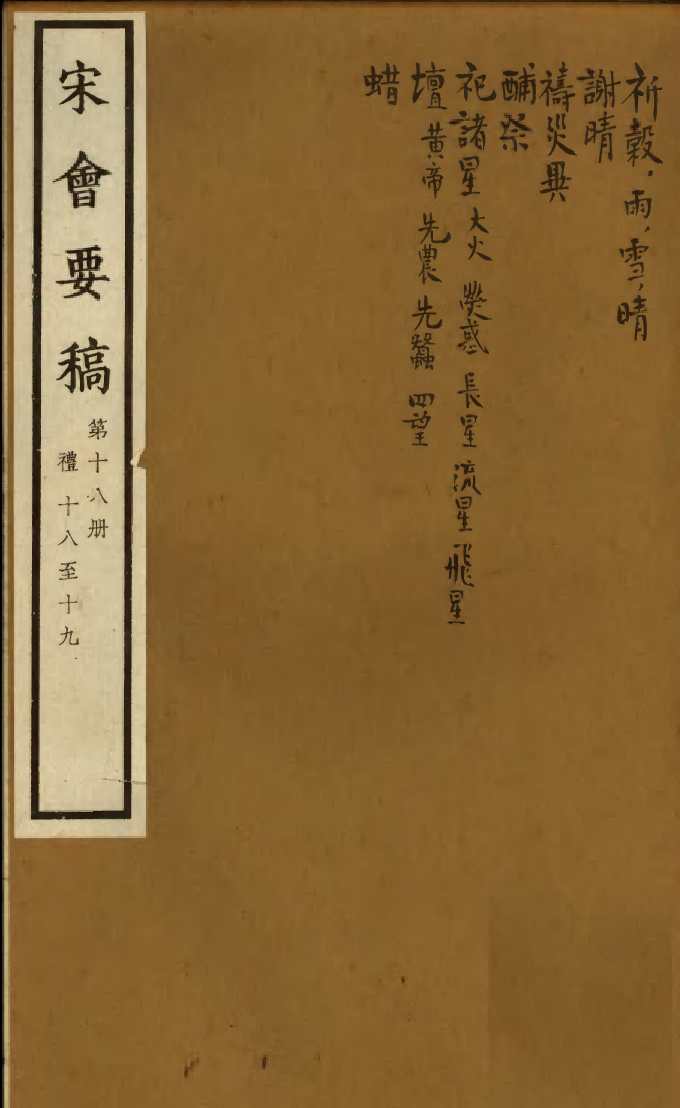 祈穀，雨，雪，晴
謝晴
禱災異
酺祭
祀諸星 大火 熒惑 長星 流星 飛星
壇 黄帝 先農 先蠶 四望
蜡
宋會要稿
第十八册
禮 十八至十九